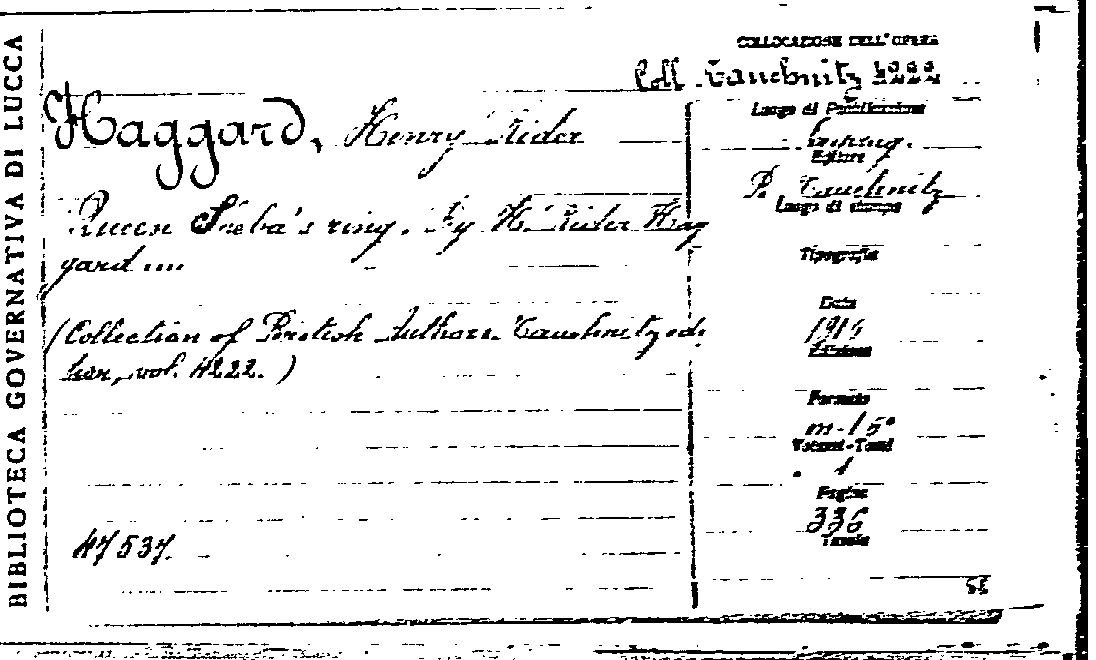 BIBLIOTECA GOVERNATIVA DI LUCCA
COLLOCAZIONE DELL'OPERA
Coll. Tauchnitz 4222
Haggard, Henry Rider
Queen Sheba's ring. By H. Rider Hag
gard ....
(Collection of British Authors. Tauchnitz edi
tion, vol. 4222.)
47537.
Luogo di Pubblicazione
Leipzig.
Editore
B. Tauchnitz
Luogo di stampa
Tipografia
Data
Edizione
Formato
m-15°
Volumi-Tomi
1
Pagine
336
Tavole